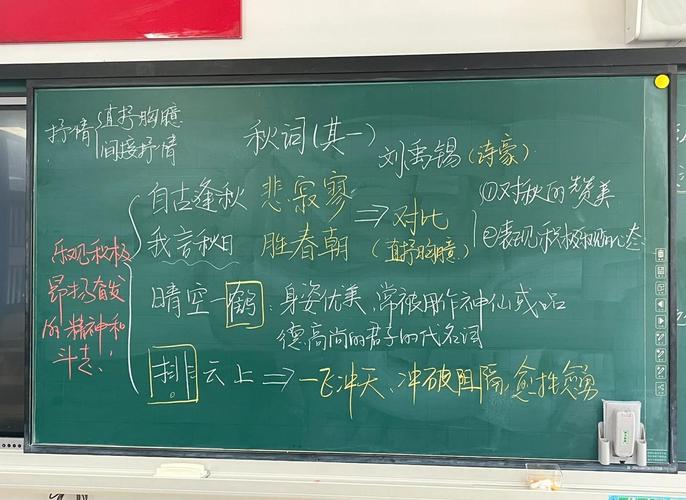 抒情 直抒胸臆
间接抒情
秋词(其一)
刘禹锡(诗豪)
自古逢秋 悲寂寥
我言秋日 胜春朝
⇒对比
(直抒胸臆)
①对秋的赞美
②表现积极乐观心态
晴空一鹤：身姿优美，常被用作神仙或品
德高尚的君子的代名词
排云上⇒一飞冲天、冲破阻隔，愈挫愈勇
乐观积极
昂扬奋发
的精神和
斗志！